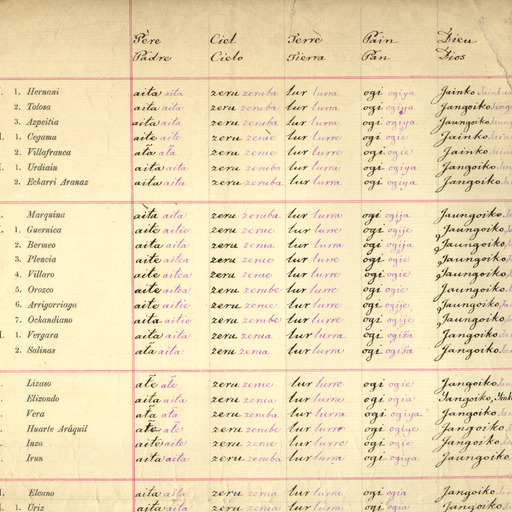 Père Ciel Terre Pain Dieu
Padre Cielo Tierra Pan Dios
1. Hernani aita aita zeru zeruba lur lurra ogi ogiya Jainko
2. Tolosa aita aita zeru zeruba lur lurra ogi ogiya Jangoiko
3. Azpeitia aita aita zeru zeruba lur lurra ogi ogiya Jaungoiko
1. Cegama aite aite zeru zerue lur lurre ogi ogie Jainko
2. Villafranca ata ata zeru zerue lur lurre ogi ogie Jainko
1. Urdiain aita aita zeru zeruba lur lurra ogi ogiya Jangoiko
2. Echarri Aranaz aita aita zeru zeruba lur lurra ogi ogiya Jangoiko
Marquina aita aita zeru zeruba lur lurra ogi ogija Jaungoiko
1. Guernica aita aitie zeru zerue lur lurre ogi ogije Jaungoiko
2. Bermeo aita aita zeru zerua lur lurra ogi ogija Jaungoiko
3. Plencia aite aitea zeru zerue lur lurre ogi ogie Jaungoiko
4. Villaro aite aitea zeru zerue lur lurre ogi ogie Jaungoiko
5. Orozco aite aitea zeru zerube lur lurre ogi ogie Jaungoiko
6. Arrigorriaga aite aitie zeru zerue lur lurre ogi ogije Jaungoiko
7. Ochandiano aite aitie zeru zerube lur lurre ogi ogije Jaungoiko
1. Vergara aita aita zeru zerua lur lurra ogi Jangoiko
2. Salinas ata aita zeru zerua lur lurra ogi Jangoiko
Lizaso ate ate zeru zerue lur lurre ogi ogie Jangoiko
Elizondo aita aita zeru zerua lur lurra ogi ogia Jangoiko,
Vera ata ata zeru zeruba lur lurra ogi ogiya Jangoiko
Huarte Aráquil ate ate zeru zerube lur lurre ogi ogiye Jangoiko
Inza aite aite zeru zerue lur lurre ogi ogie Jangoiko
Irun aita aita zeru zeruba lur lurra ogi ogiya Jaungoiko
Elcano aita aita zeru zerua lur lurra ogi ogia Jangoiko
1. Uriz aita aita zeru zerua lur lurra ogi ogia Jangoiko